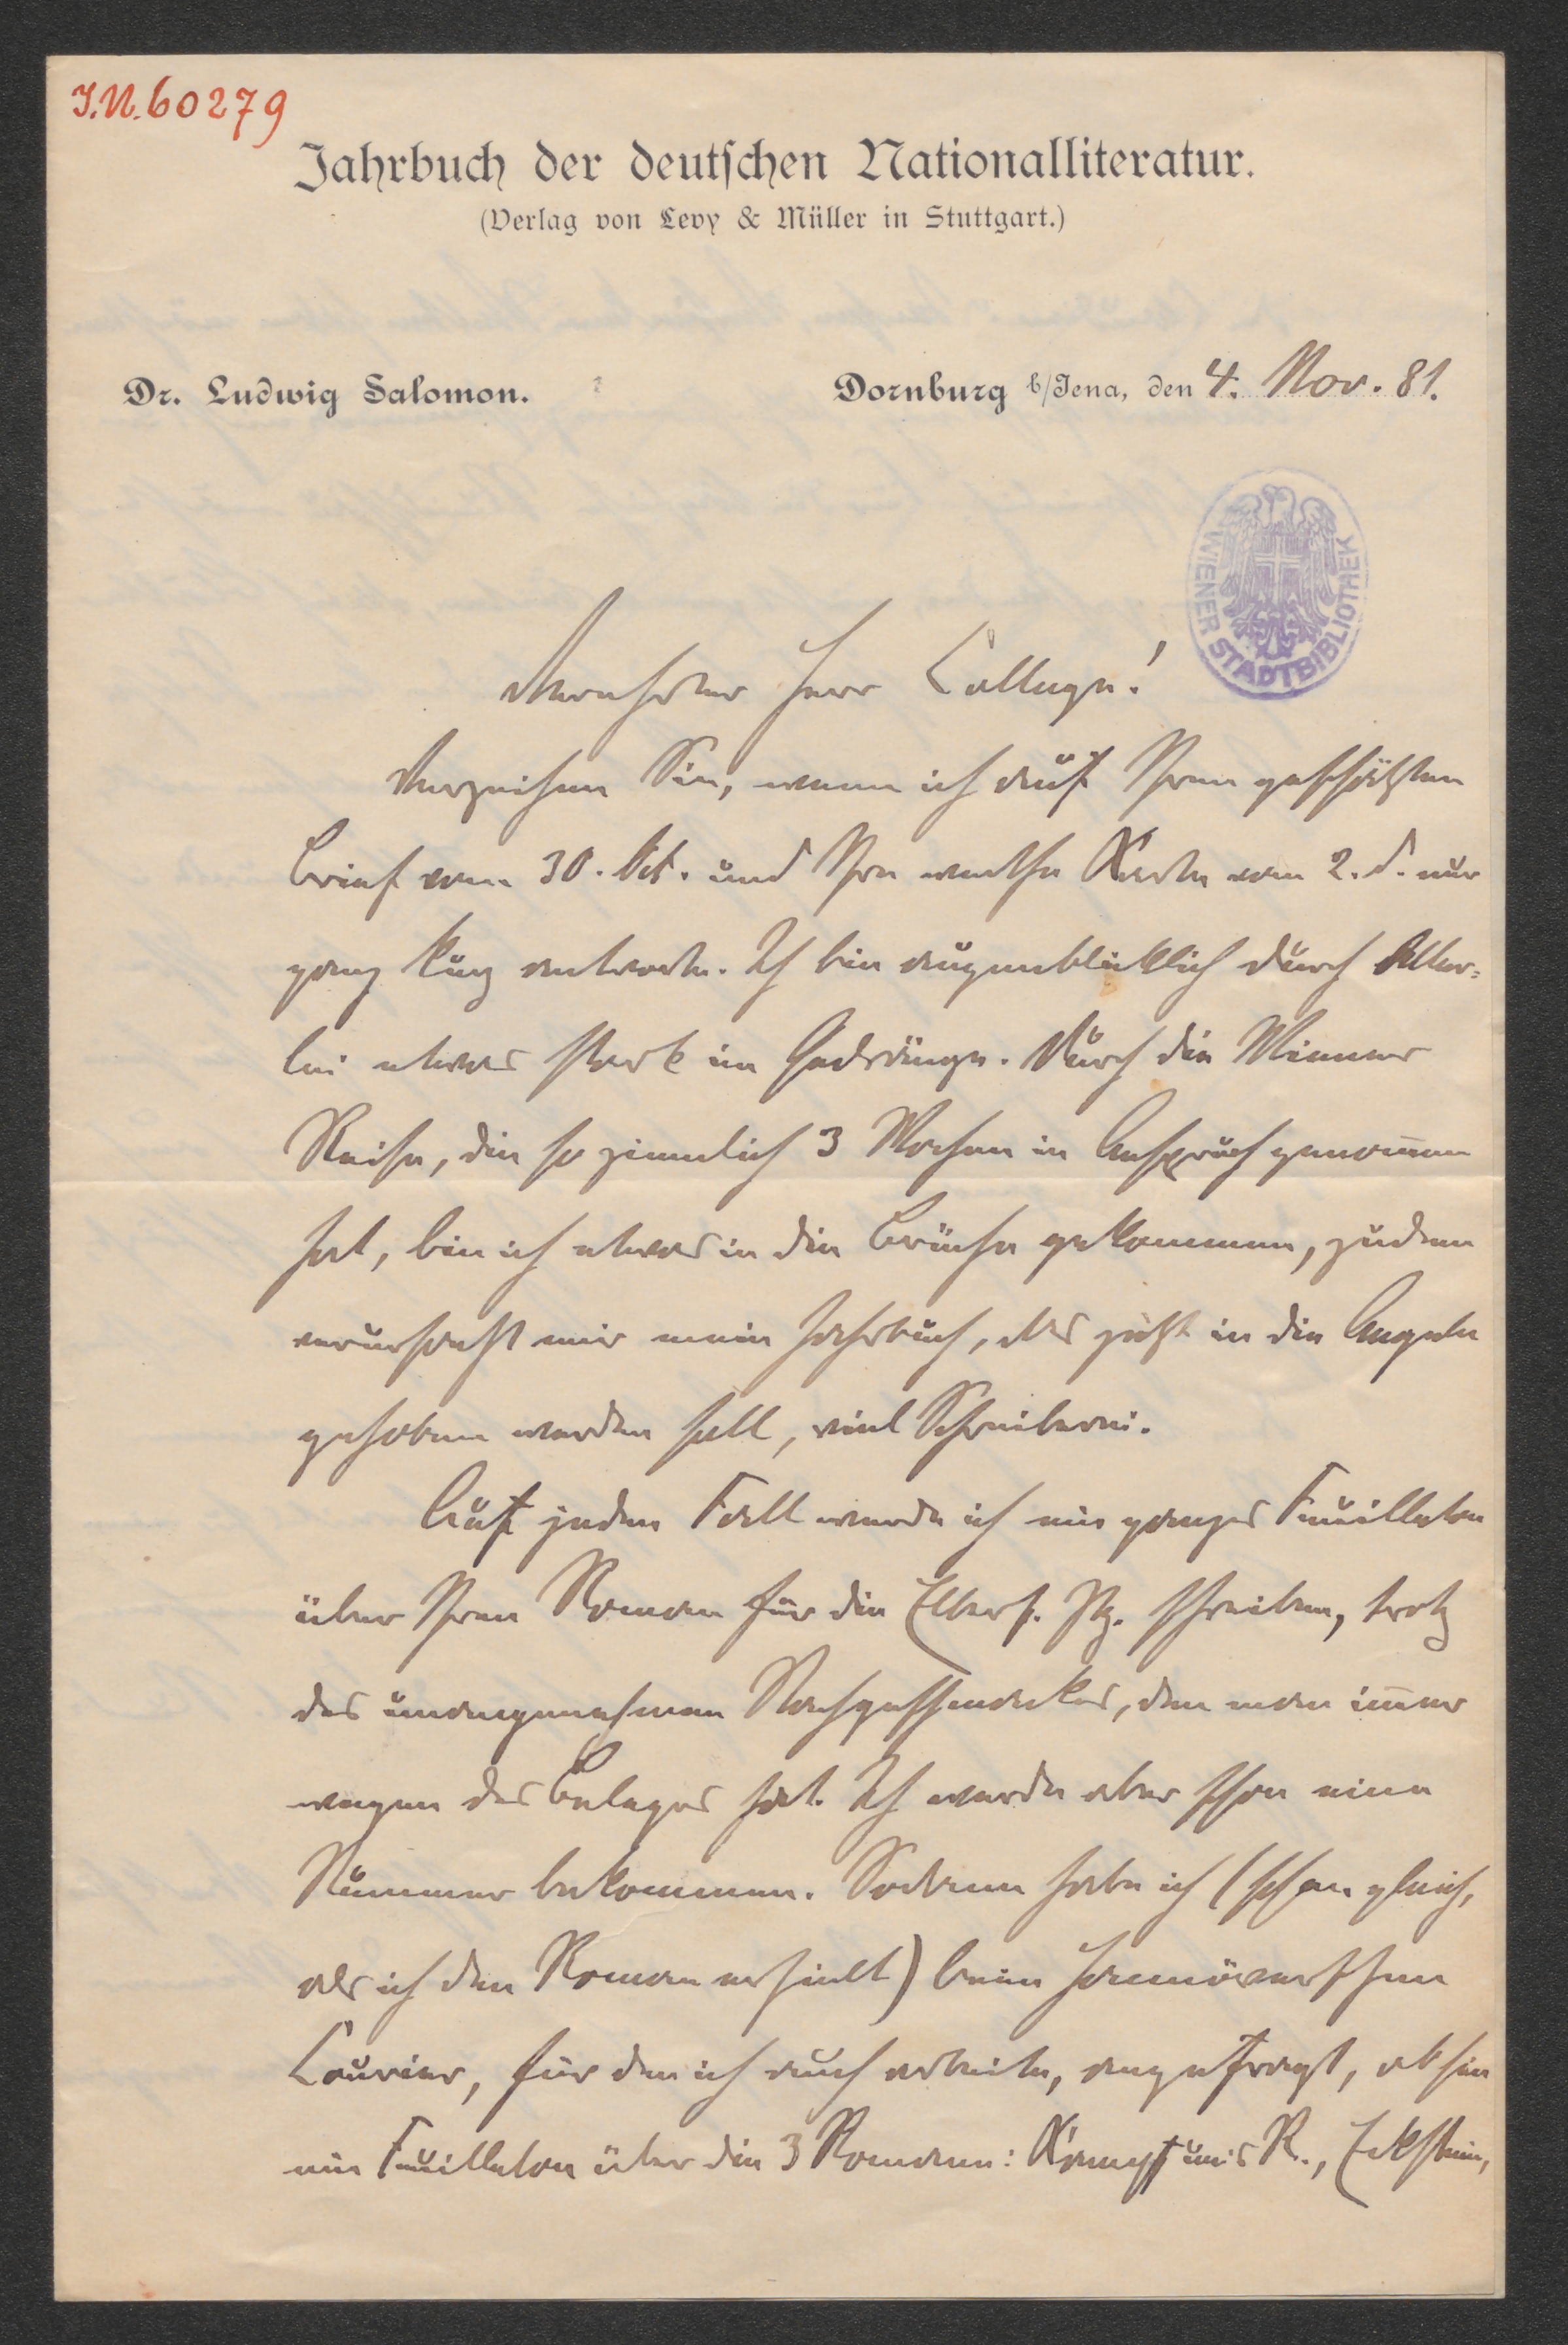 I.N. 60279
Jahrbuch der deutschen Nationalliteratur.
(Verlag von Levy & Müller in Stuttgart.)
Dr. Ludwig Salomon.
Dornburg b/Jena, den 4. Nov. 81.
WIENER STADTBIBLIOTHEK
Verehrter Herr College!
Verzeihen Sie, wenn ich auf Ihren geschätzten
Brief vom 30. Oct. und Ihre werthe Karte vom 2. d. nur
ganz kurz antworte. Ich bin augenblicklich durch Aller-
lei etwas stark im Gedränge. Durch die Wiener
Reise, die so ziemlich 3 Wochen in Anspruch genom̅en
hat, bin ich etwas in die Brüche gekommen, zudem
verursacht mir mein Jahrbuch, das jetzt in die Angeln
gehoben werden soll, viel Schreiberei.
Auf jeden Fall werde ich ein ganzes Feuilleton
über Ihren Roman für die Elberf. Ztg. schreiben, trotz
des unangenehmen Nachgeschmackes, den man im̅er
wegen des Beleges hat. Ich werde aber schon eine
Nummer bekommen. Sodann habe ich (schon gleich,
als ich den Roman erhielt) beim Hannöverschen
Courier, für den ich auch arbeite, angefragt, ob sie
ein Feuilleton über die 3 Romane: Kampf um's R., Eckstein,